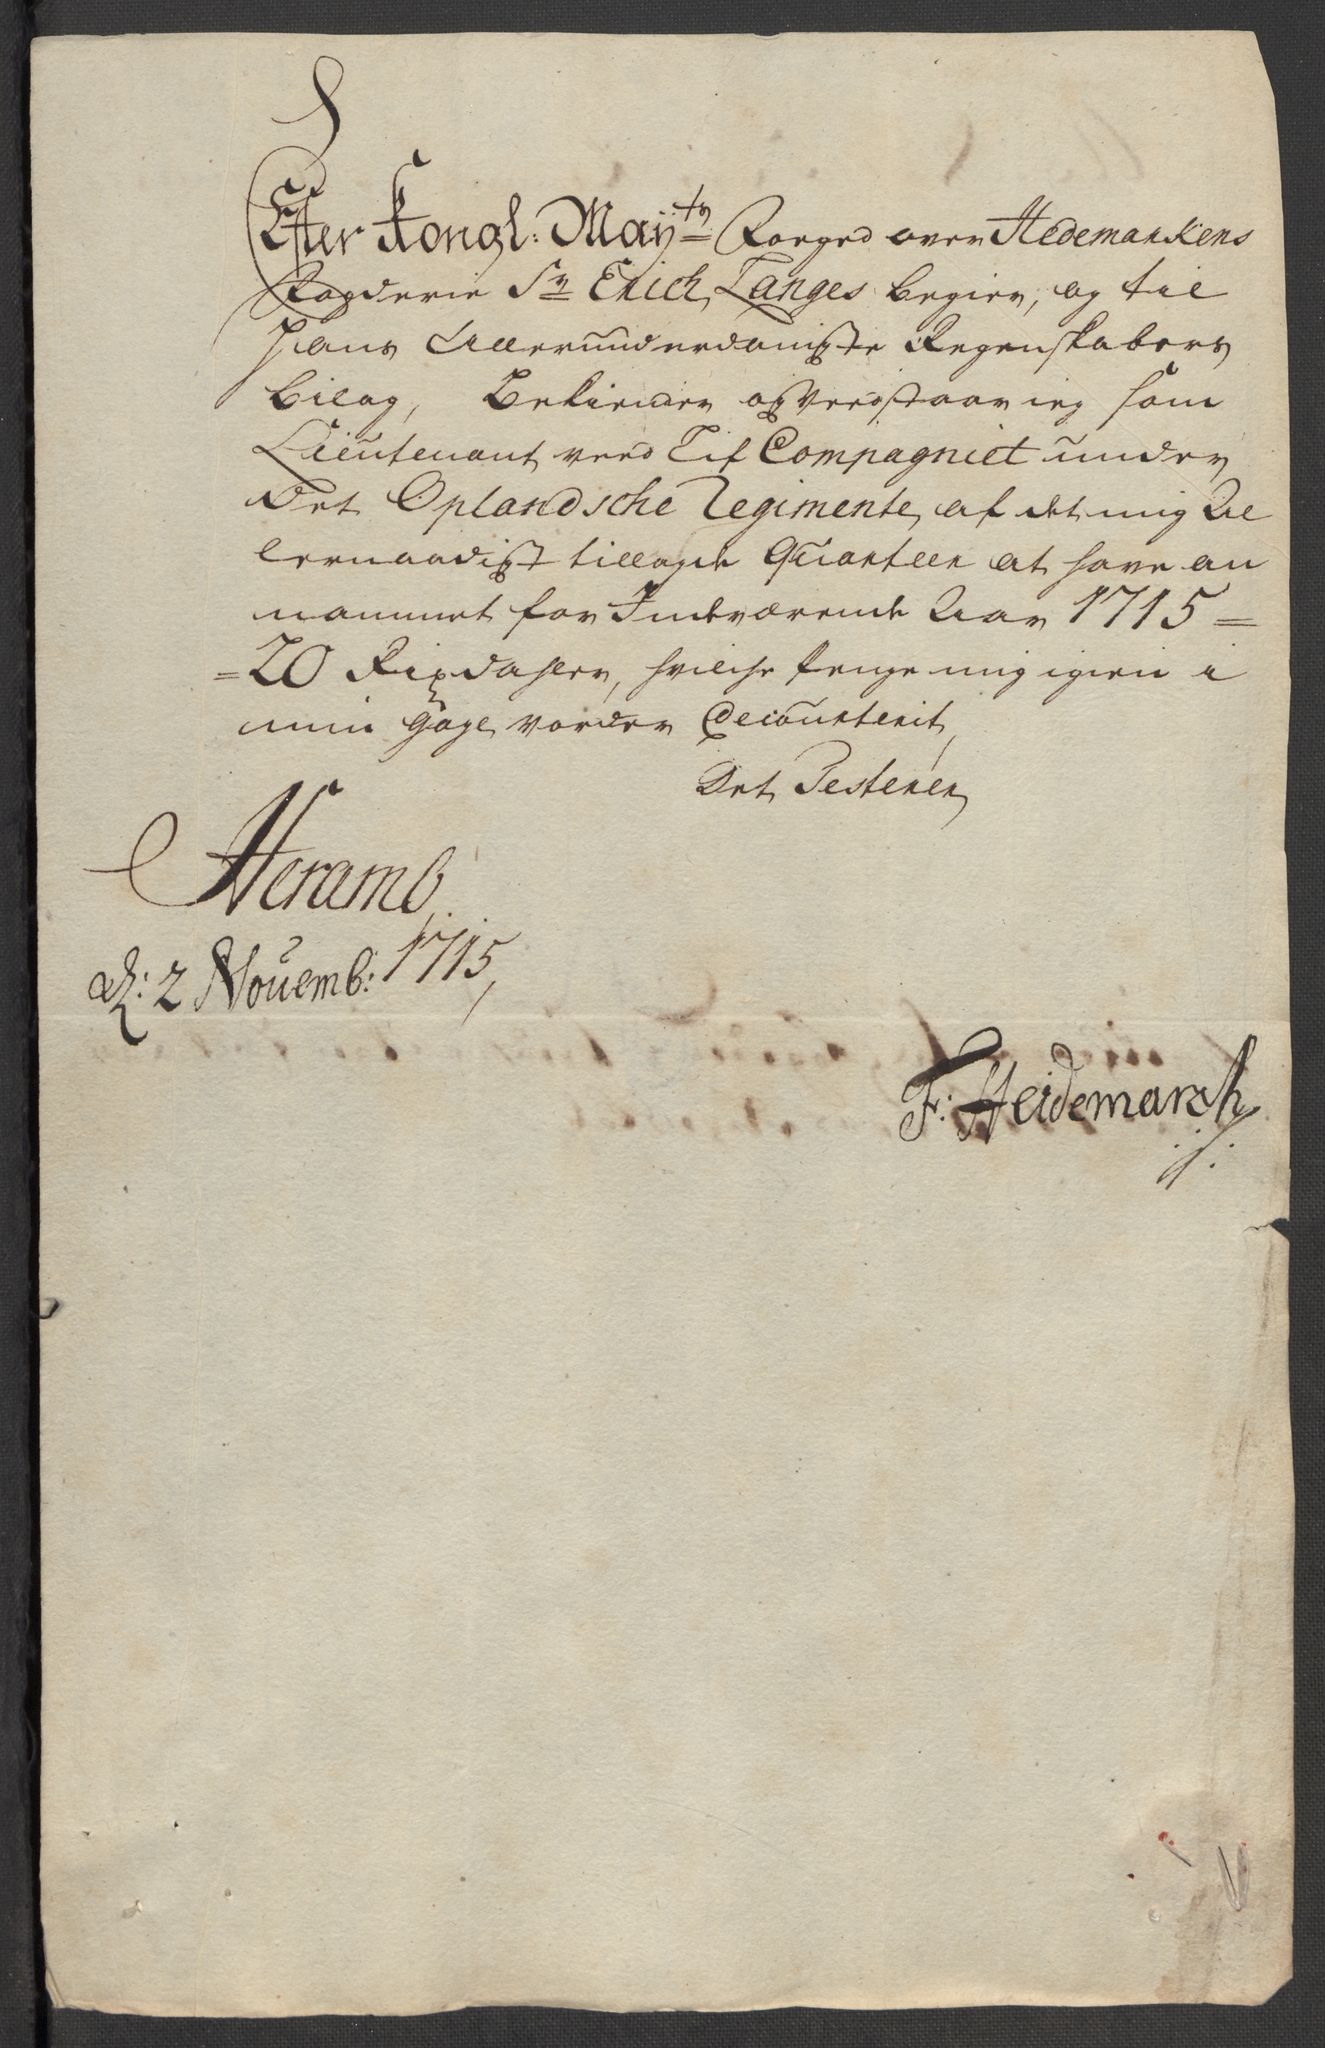 Efter Kongl: Maÿ.ts Foeged over Hedemarkens
Fogderie Sr Erich Langes begier, og til
hans Allerunderdanigste Regenskabers
bilag, Bekiender og Tilstaar ieg som
Lieutenant ved Lif Compagniet under
Det Oplandsche Regimente, af det mig Al
lernaadigst tillagde Quarteer at have an
nammet for Indeværende Aar 1715 =
= 20 Rixdahler, hvilche penge mig igien i
min Gage vorder decourterit,
Det Testerer
Heramb
d: 2 Novemb: 1715,
F: Heidemarch